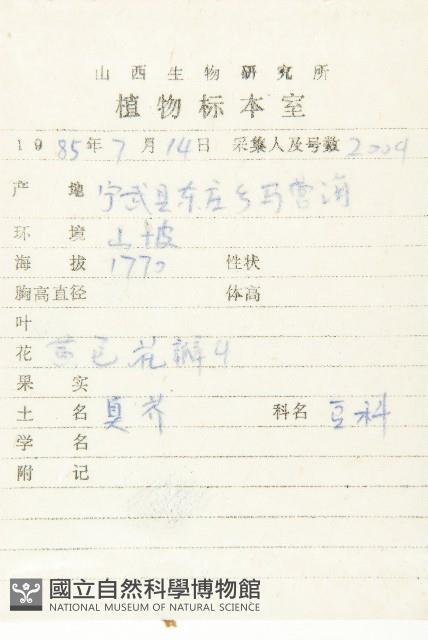 山西生物研究所
植物标本室
1985年7月14日 采集人及号数 2004
产地 宁武县东庄乡马营海
环境 山坡
海拔 1770 性状
胸高直径 体高
叶
花 黄色花瓣4
果实
土名 臭芥 科名 豆科
学名
附记
國立自然科學博物館
NATIONAL MUSEUM OF NATURAL SCIENCE